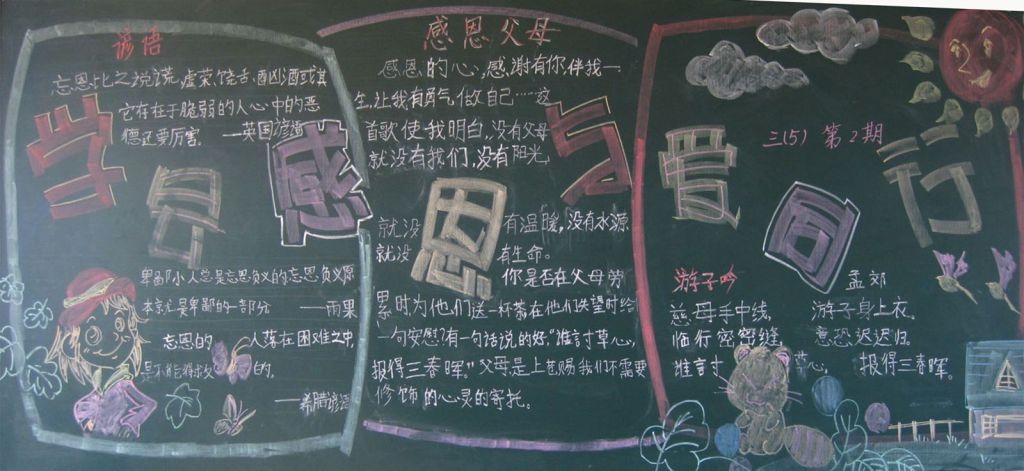 谚语
忘恩比之说谎、虚荣、饶舌、酗酒或其
它存在于脆弱的人心中的恶
德还要厉害。 —英国谚语
学 会 感 恩 与 爱 同 行
卑鄙小人总是忘恩负义的忘恩负义原
本就是卑鄙的一部分 ——雨果
忘恩的 人落在困难之中,
是不能得救 的。
——希腊谚语
感恩父母
感恩的心,感谢有你伴我一
生,让我有勇气,做自己……这
首歌使我明白,没有父母
就没有我们,没有阳光,
就没 有温暖,没有水源
就没 有生命。
你是否在父母劳
累时为他们送一杯茶在他们失望时给
一句安慰?有一句话说的好:"谁讨草心,
报得三春晖。"父母是上苍赐我们不需要
修饰的心灵的寄托。
三(5) 第2期
游子吟 孟郊
慈母手中线, 游子身上衣。
临行密密缝, 意恐迟迟归。
谁言寸 草心, 报得三春晖。